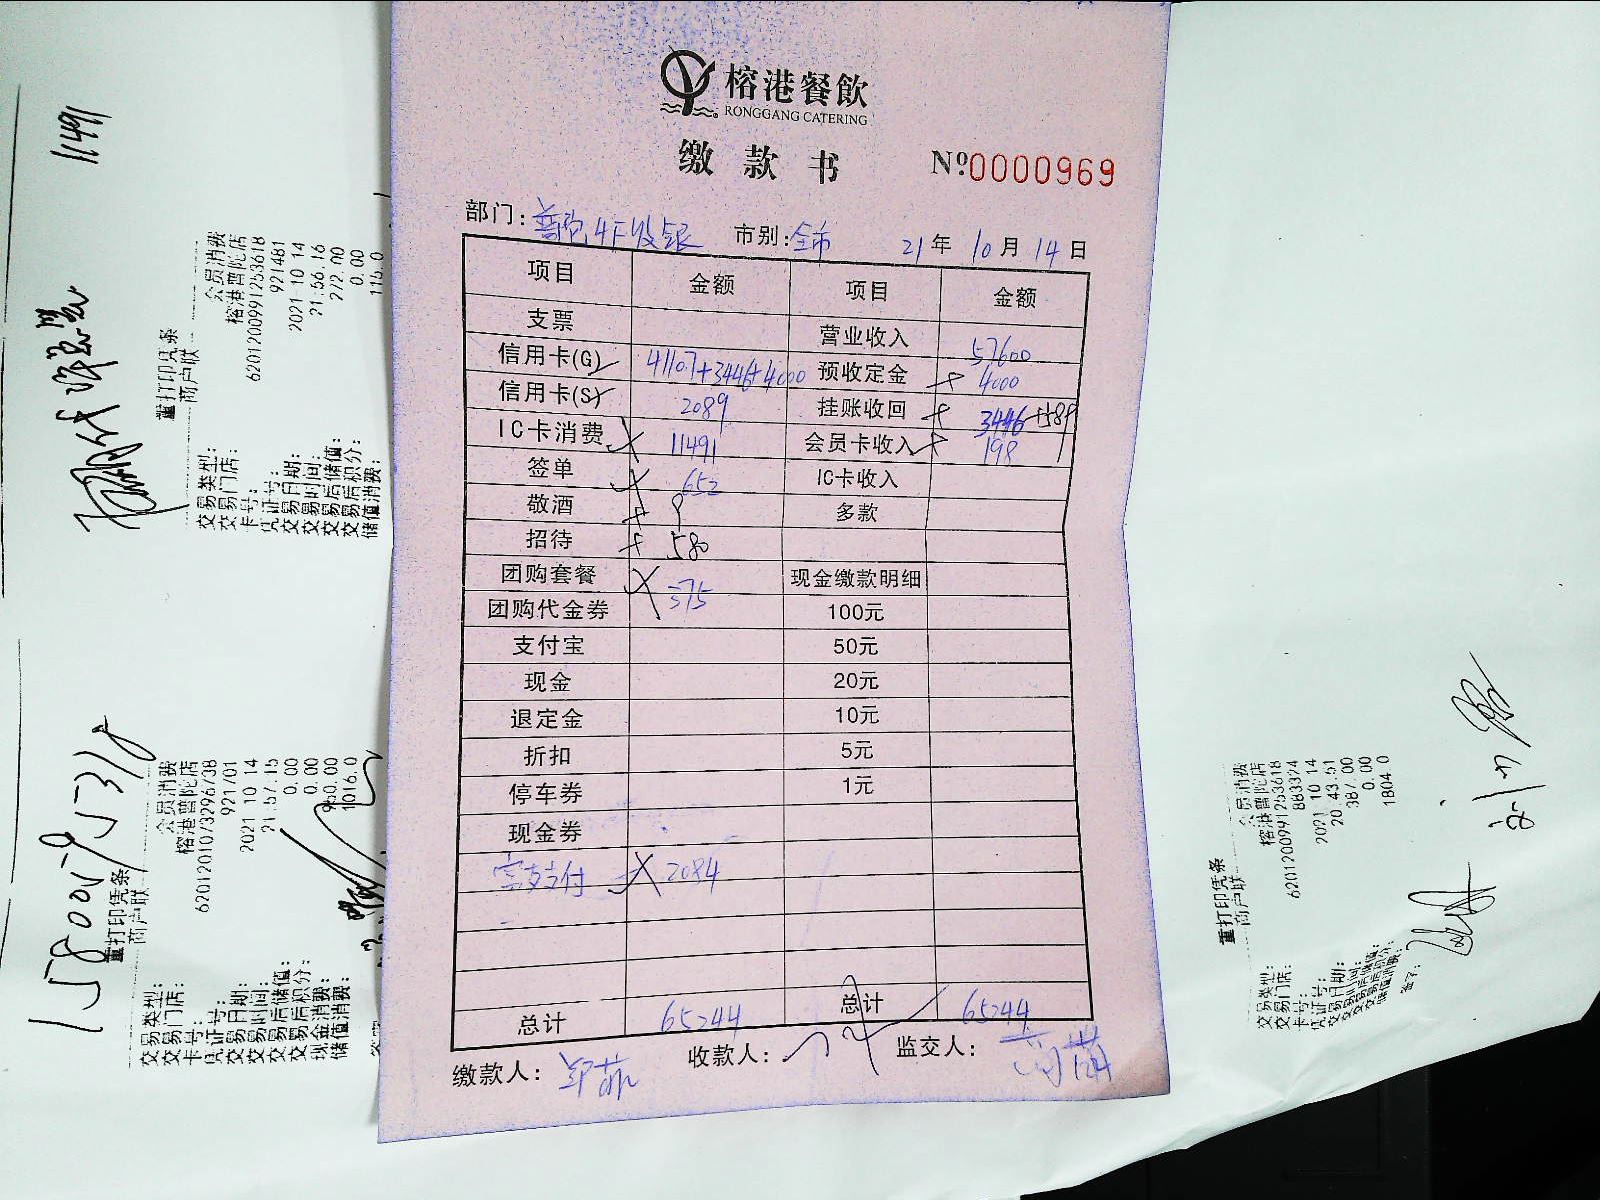 榕港餐飲
RONGGANG CATERING
缴款书 №0000969
部门: 普陀4F收银 市别: 全市 21年10月14日
项目 金额 项目 金额
支票 营业收入 57600
信用卡(G) 41107+3446+4000 预收定金 4000
信用卡(S) 2089 挂账收回 3446
IC卡消费 11491 会员卡收入 198
签单 652 IC卡收入
敬酒 多款
招待 580
团购套餐 375 现金缴款明细
团购代金券 100元
支付宝 50元
现金 20元
退定金 10元
折扣 5元
停车券 1元
现金券
支付 2084
总计 65244 总计 65244
缴款人: 收款人: 监交人:
11491
重打印凭条
商户联
交易类型: 会员消费
交易门店: 榕港普陀店
卡号: 6201200991253618
凭证号: 921481
交易日期: 2021 10 14
交易时间: 21:56:16
交易后储值: 272.00
交易后积分: 0.00
储值消费: 116.0
重打印凭条
商户联
交易类型: 会员消费
交易门店: 榕港普陀店
卡号: 6201201073296738
凭证号: 921701
交易日期: 2021 10 14
交易时间: 21:57:15
交易后储值: 0.00
交易后积分: 0.00
现金消费: 960.00
储值消费: 1016.0
重打印凭条
商户联
交易类型: 会员消费
交易门店: 榕港普陀店
卡号: 6201200991253618
凭证号: 883324
交易日期: 2021 10 14
交易时间: 20:43:51
交易后储值: 387.00
交易后积分: 0.00
储值消费: 1804.0
签字: